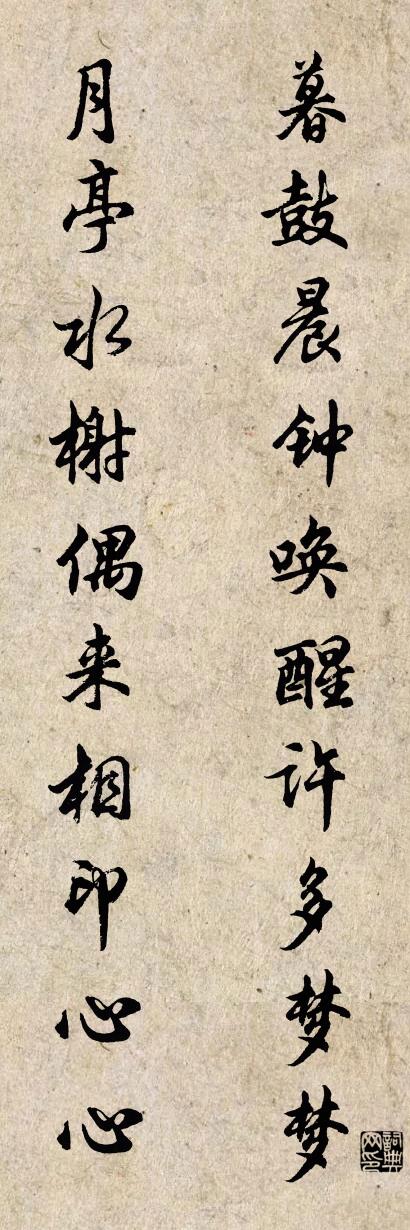 暮鼓晨钟唤醒许多梦梦
月亭水榭偶来相印心心
詞典网印